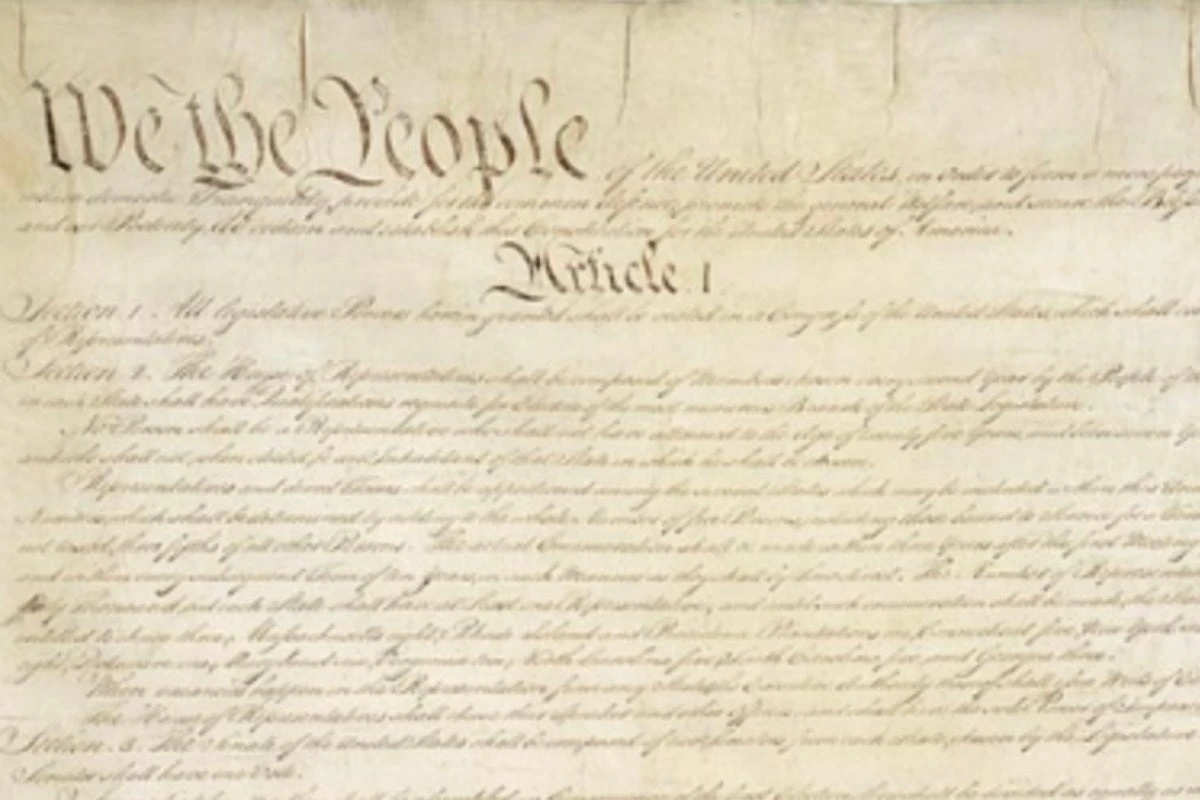 We the People of the United States, in Order to form a more
insure domestic Tranquility, provide for the common defence, promote the general Welfare, and secure the
and our Posterity, do ordain and establish this Constitution for the United States of America.
Article. I
Section. 1. All legislative Powers herein granted shall be vested in a Congress of the United States, which shall
of Representatives.
Section. 2. The House of Representatives shall be composed of Members chosen every second Year by the People of
in each State shall have Qualifications requisite for Electors of the most numerous Branch of the State Legislature.
No Person shall be a Representative who shall not have attained to the Age of twenty five Years, and been seven
and who shall not, when elected, be an Inhabitant of that State in which he shall be chosen.
Representatives and direct Taxes shall be apportioned among the several States which may be included within this
Numbers, which shall be determined by adding to the whole Number of free Persons, including those bound to Service for a
not taxed, three fifths of all other Persons. The actual Enumeration shall be made within three Years after the first
and within every subsequent Term of ten Years, in such Manner as they shall by Law direct. The Number of
thirty Thousand, but each State shall have at Least one Representative; and until such enumeration shall be made, the
entitled to chuse three, Massachusetts eight, Rhode Island and Providence Plantations one, Connecticut five, New York
eight, Delaware one, Maryland six, Virginia ten, North Carolina five, South Carolina five, and Georgia three.
When vacancies happen in the Representation from any State, the Executive Authority thereof shall issue Writs of
The House of Representatives shall chuse their Speaker and other Officers; and shall have the sole Power of
Section. 3. The Senate of the United States shall be composed of two Senators from each State, chosen by the Legislature
Senator shall have one Vote.